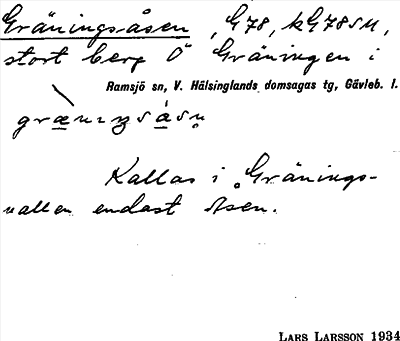 Gräningsåsen, G78, kG78SM,
stort berg Ö Gräningen i
Ramsjö sn, V. Hälsinglands domsagas tg, Gävleb. l.
Kallas i Gränings-
vallen endast Åsen.
LARS LARSSON 1934